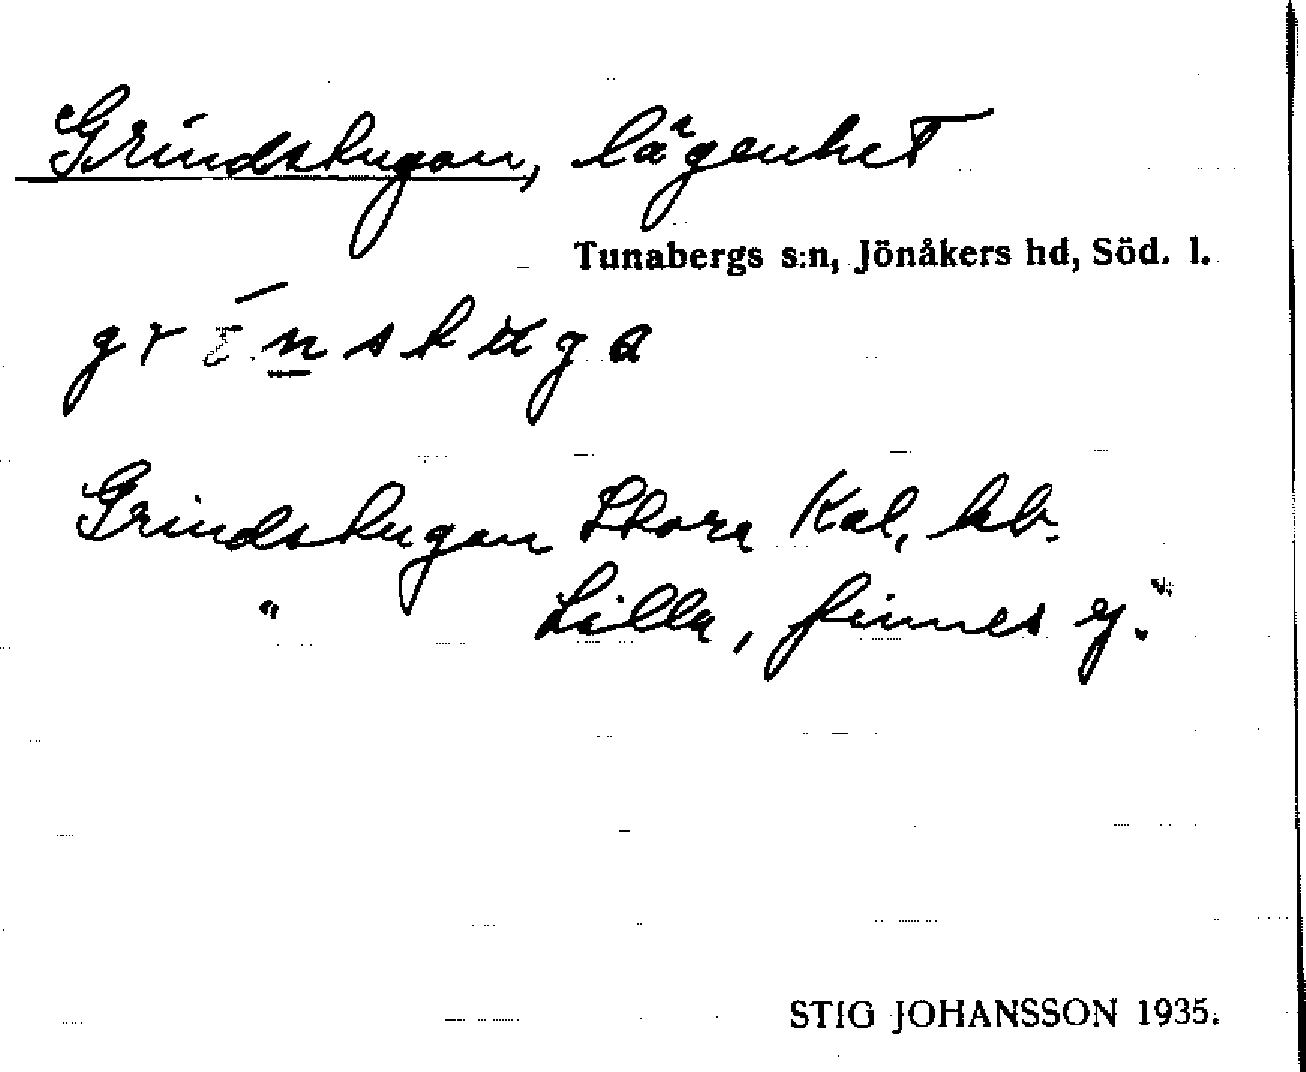 Grindskugan, lägenhet
Tunabergs s:n, Jönåkers hd, Söd. l.
Grindskugan Stora Kal, kb.
" Lilla, finnes ej."
STIG JOHANSSON 1935.